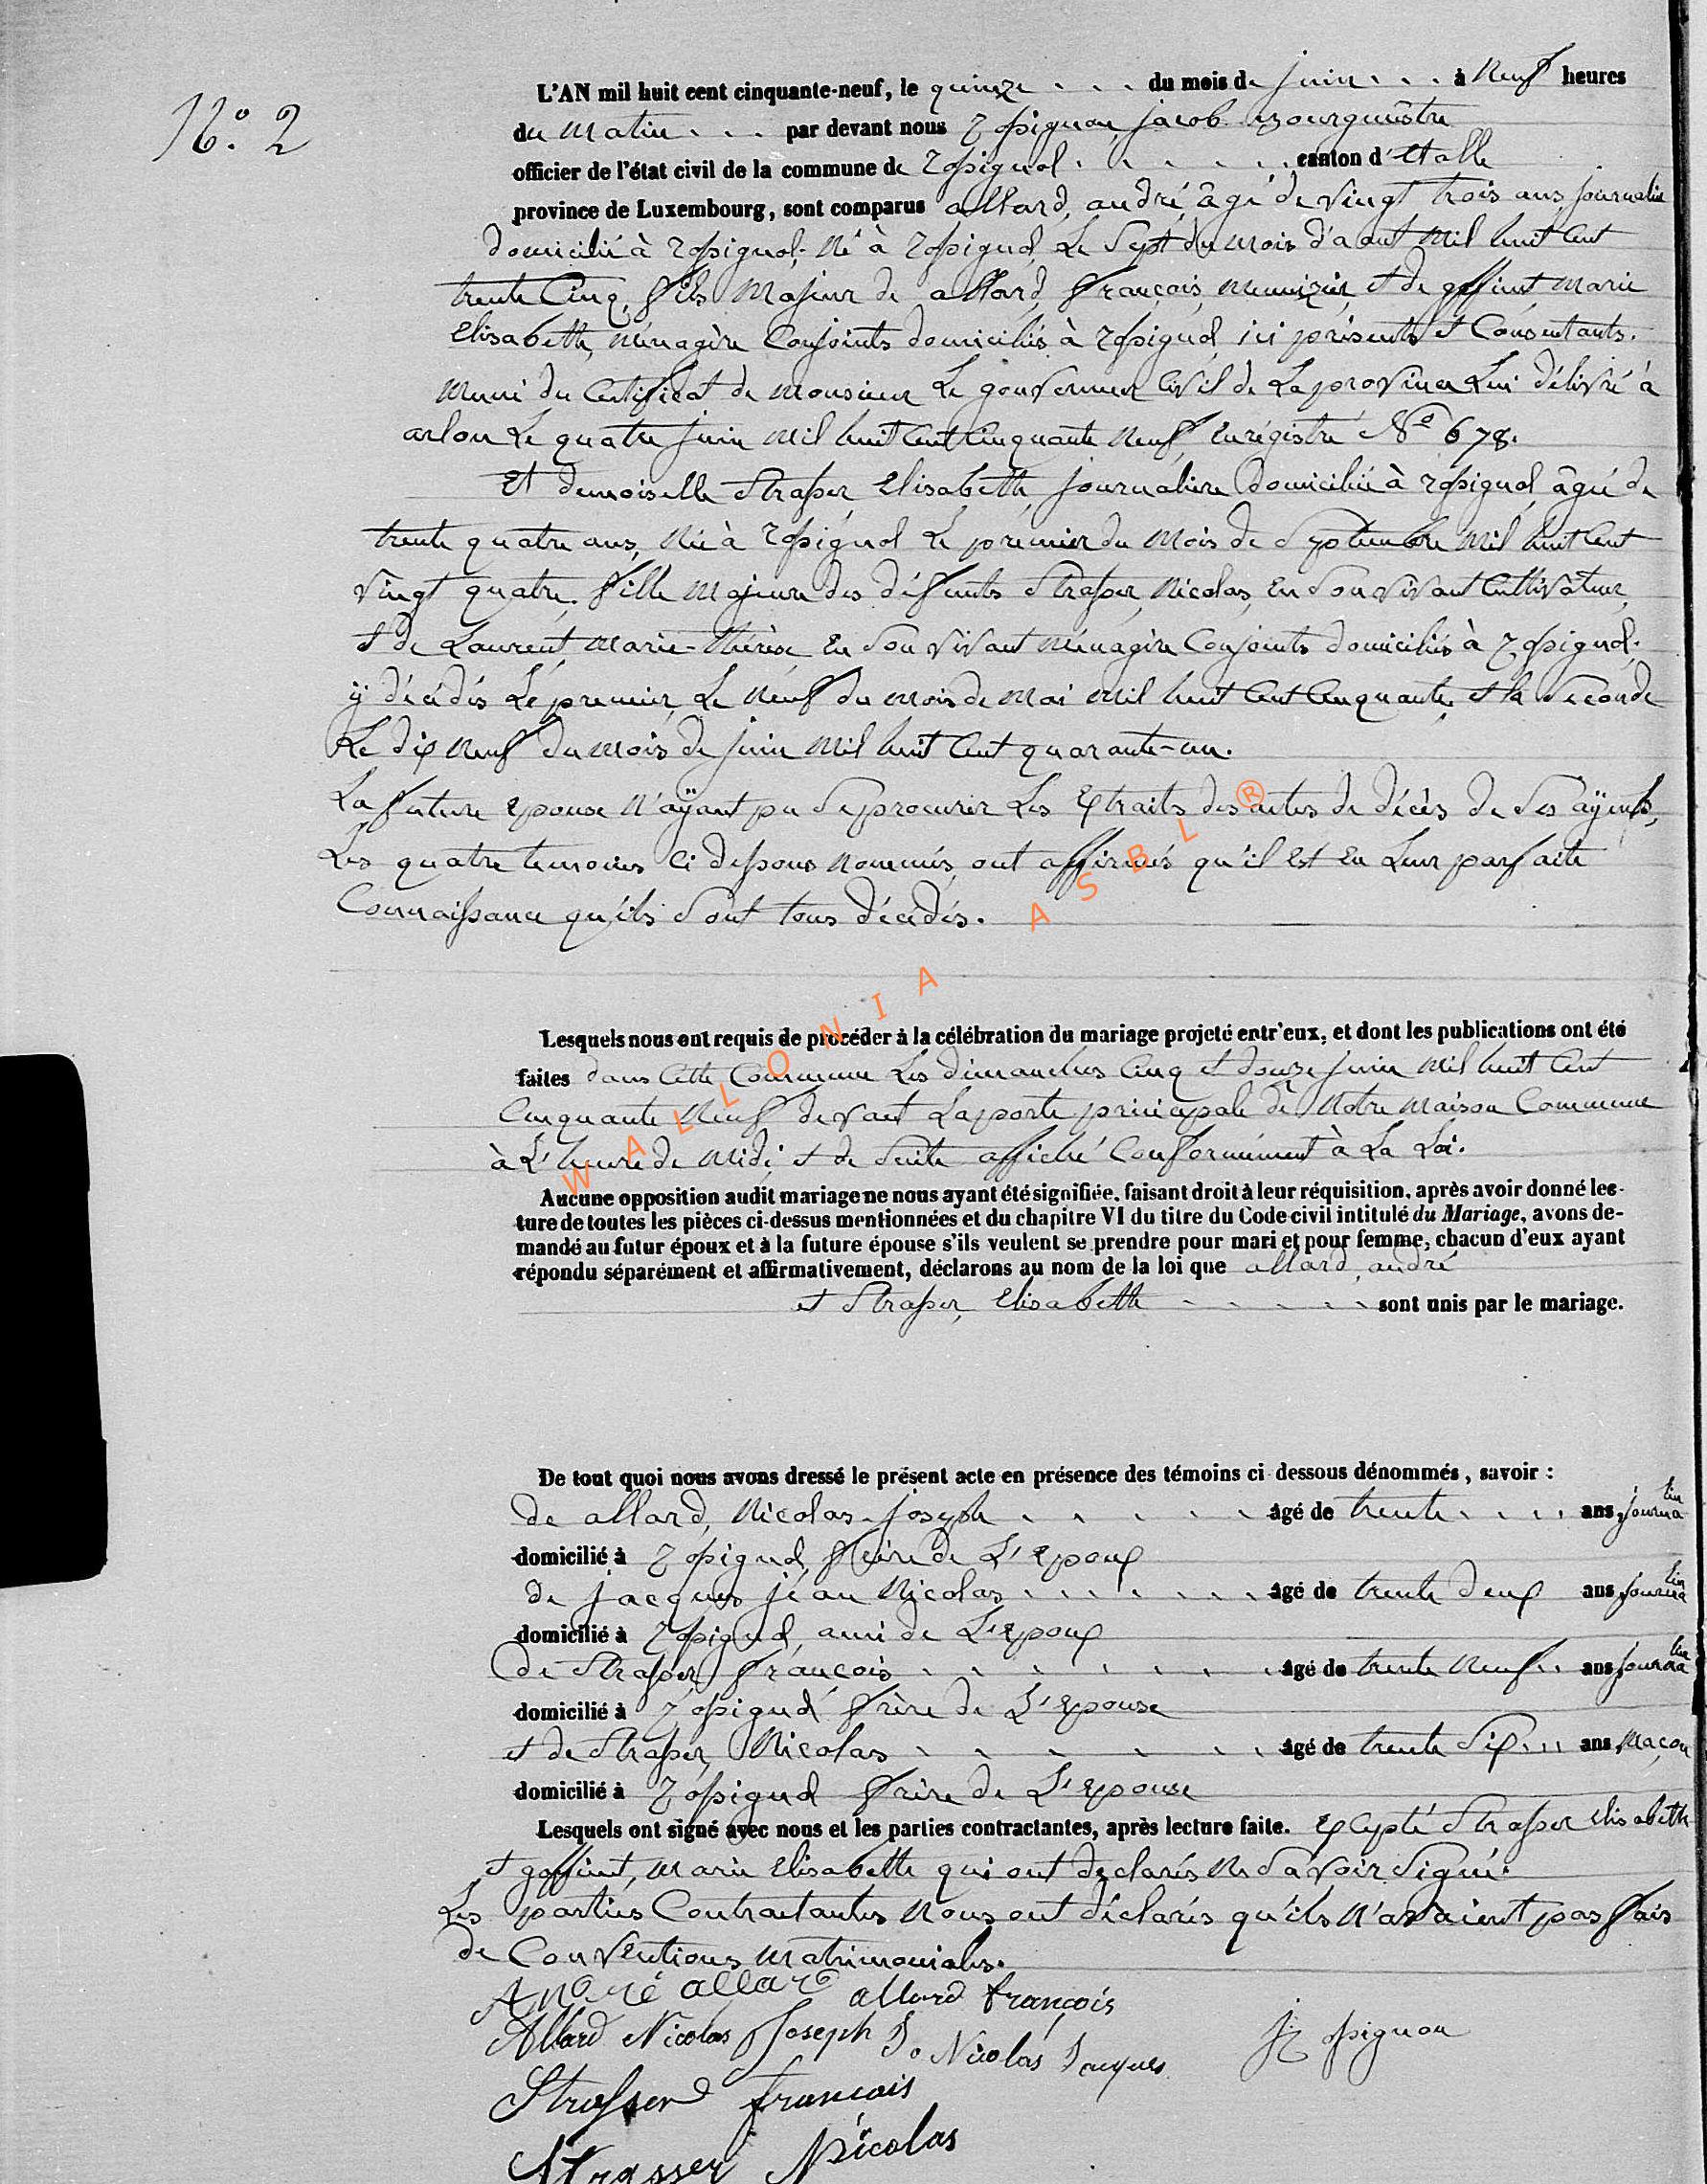 N.º 2
L'AN mil huit cent cinquante-neuf, le quinze . . . du mois de juin . . . à neuf heures
du matin . . . par devant nous Rossignon, jacob Bourguestre
officier de l'état civil de la commune de Rossignol . . . . . . canton d'Etalle
province de Luxembourg, sont comparus allard, andré, âgé de vingt trois ans, journalier
domicilié à Rossignol; né à Rossignol, Le Sept du mois d'aout mil huit Cent
trente Cinq, fils Majeur de allard, françois, menuizier, et de goffinet Marie
Elisabeth, ménagère Conjoints domiciliés à Rossignol, ici présents et Consentants.
muni du Certificat de Monsieur Le gouverneur Civil de La province Lui délivré à
arlon Le quatre juin mil huit Cent Cinquante neuf, Enrégistré Nº 678.
Et demoiselle Strasser, Elisabeth, journalière domiciliée à Rossignol, âgée de
trente quatre ans, née à Rossignol Le premier du Mois de Septembre mil huit Cent
vingt quatre, fille Majeure des défunts Strasser, Nicolas, En Son vivant Cultivateur,
et de Laurent, Marie-thérèse En Son vivant ménagère Conjoints domiciliés à Rossignol;
ÿ décédés Le premier, Le neuf du mois de Mai mil huit Cent Cinquante, et la Seconde
Le dix neuf du mois de juin Mil huit Cent quarante-un.
La future Epouse n'aÿant pu Se procurer Les Extraits des actes de décès de Ses aÿeuls,
Les quatre temoins Ci dessous nommés, ont affirmés qu'il Est En Leur parfaite
Connaissance qu'ils Sont tous décédés.
Lesquels nous ont requis de procéder à la célébration du mariage projeté entr'eux, et dont les publications ont été
faites dans Cette Commune Les dimanches Cinq et douze juin mil huit Cent
Cinquante Neuf devant La porte principale de Notre Maison Commune
à L'heure de Midi; et de Suite affiché Conformément à La Loi.
Aucune opposition audit mariage ne nous ayant été signifiée, faisant droit à leur réquisition, après avoir donné lec-
ture de toutes les pièces ci-dessus mentionnées et du chapitre VI du titre du Code civil intitulé du Mariage, avons de-
mandé au futur époux et à la future épouse s'ils veulent se prendre pour mari et pour femme, chacun d'eux ayant
répondu séparément et affirmativement, déclarons au nom de la loi que allard, andré
et Strasser, Elisabeth . . . . . sont unis par le mariage.
De tout quoi nous avons dressé le présent acte en présence des témoins ci dessous dénommés, savoir :
de allard, Nicolas-joseph . . . . . âgé de trente . . . . ans, journalier
domicilié à Rossignol, frère de L'Epoux
de jacques jéan Nicolas . . . . . . . âgé de trente deux ans, journalier
domicilié à Rossignol, ami de L'Epoux
de Strasser, françois . . . . . . . âgé de trente Neuf . . ans, journalier
domicilié à Rossignol frère de L'Epouse
et de Strasser, Nicolas . . . . . . âgé de trente Six . . . ans, Maçon
domicilié à Rossignol frère de L'Epouse
Lesquels ont signé avec nous et les parties contractantes, après lecture faite. Excepté Strasser Elisabeth
et goffinet, Marie Elisabeth qui ont déclarés ne Savoir Signé.
Les parties Contractantes Nous ont déclarés qu'ils N'avaient pas fais
de Conventions Matrimoniales.
André allard allard françois
Allard Nicolas Joseph J. Nicolas Jacques
J Rossignon
Strasser francois
Strasser Nicolas
WALLONIA ASBL ®